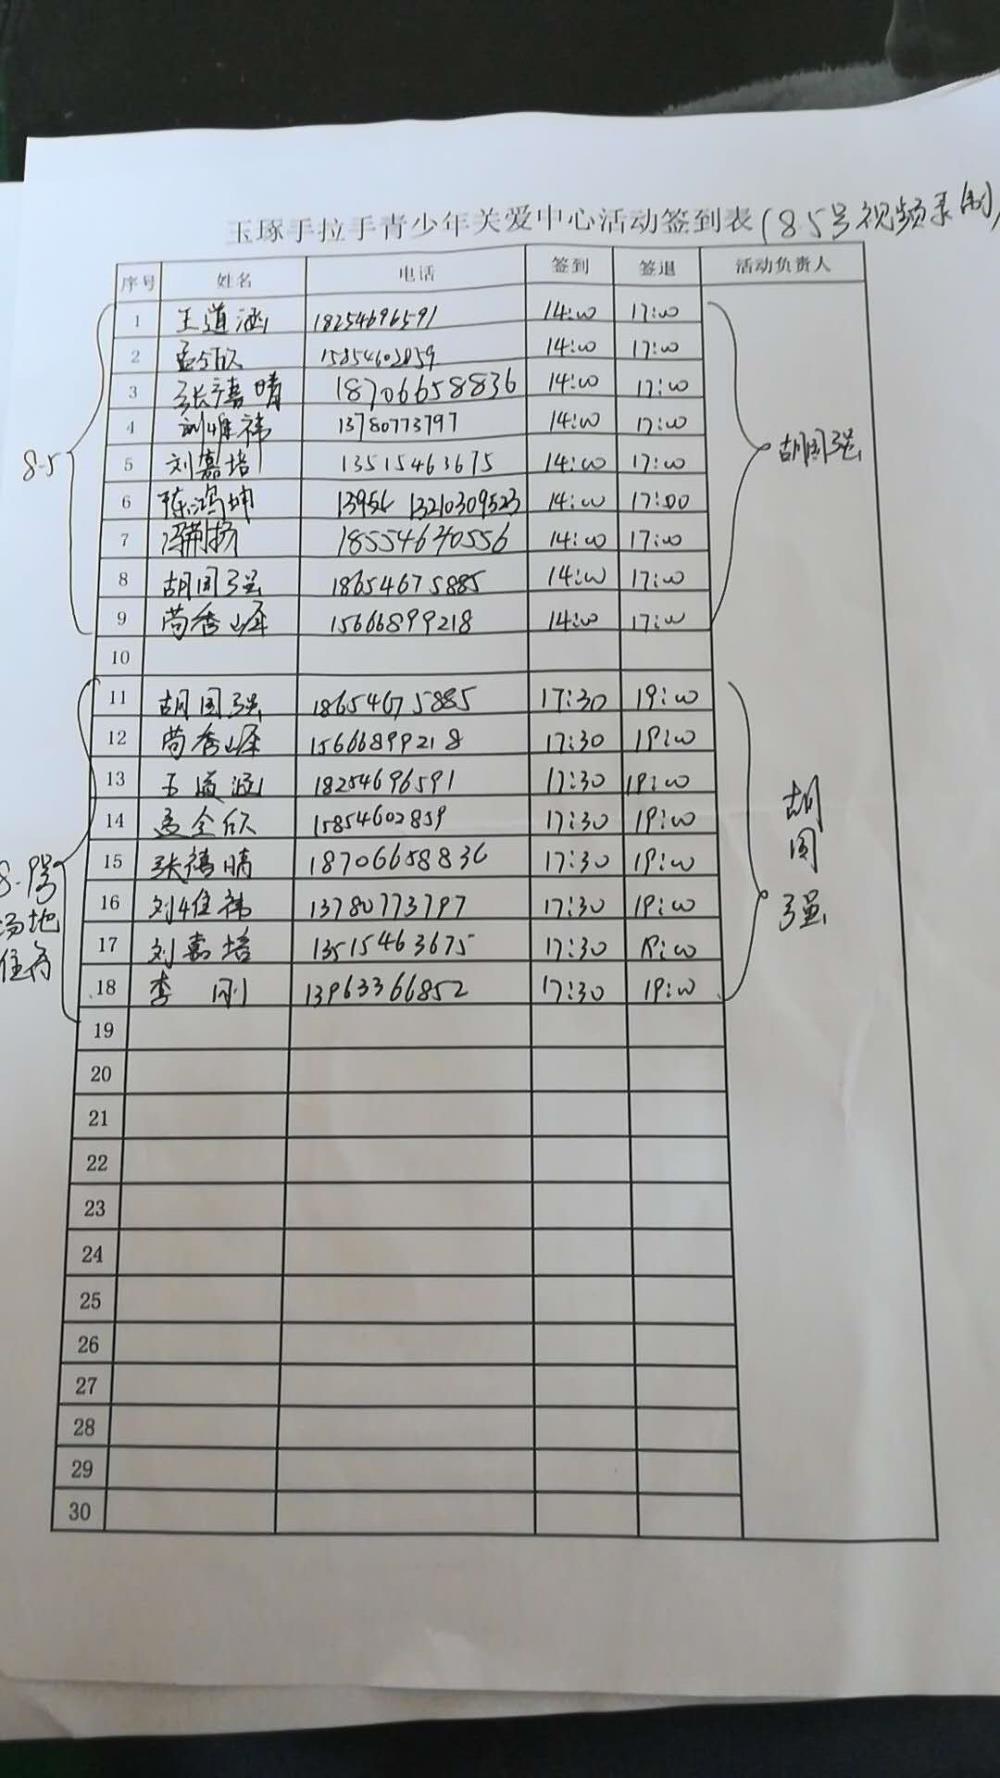 玉琢手拉手青少年关爱中心活动签到表(8.5号视频录制)
序号 姓名 电话 签到 签退 活动负责人
1 王道涵 18254696591 14:00 17:00
2 孟令欣 15854602859 14:00 17:00
3 张禧晴 18706658836 14:00 17:00
4 刘维祎 13780773797 14:00 17:00
8-5
胡国强
5 刘嘉培 13515463675 14:00 17:00
6 陈鸿坤 13954 13210309523 14:00 17:00
7 18554640556 14:00 17:00
8 胡国强 18654675885 14:00 17:00
9 苟秀峰 15666899218 14:00 17:00
10
11 胡国强 18654675885 17:30 19:00
12 苟秀峰 15666899218 17:30 19:00
13 王道涵 18254696591 17:30 19:00
14 孟令欣 15854602859 17:30 19:00
15 张禧晴 18706658836 17:30 19:00
16 刘维祎 13780773797 17:30 19:00
17 刘嘉培 13515463675 17:30 19:00
18 李刚 13963366852 17:30 19:00
8-9号
场地
胡国强
19
20
21
22
23
24
25
26
27
28
29
30